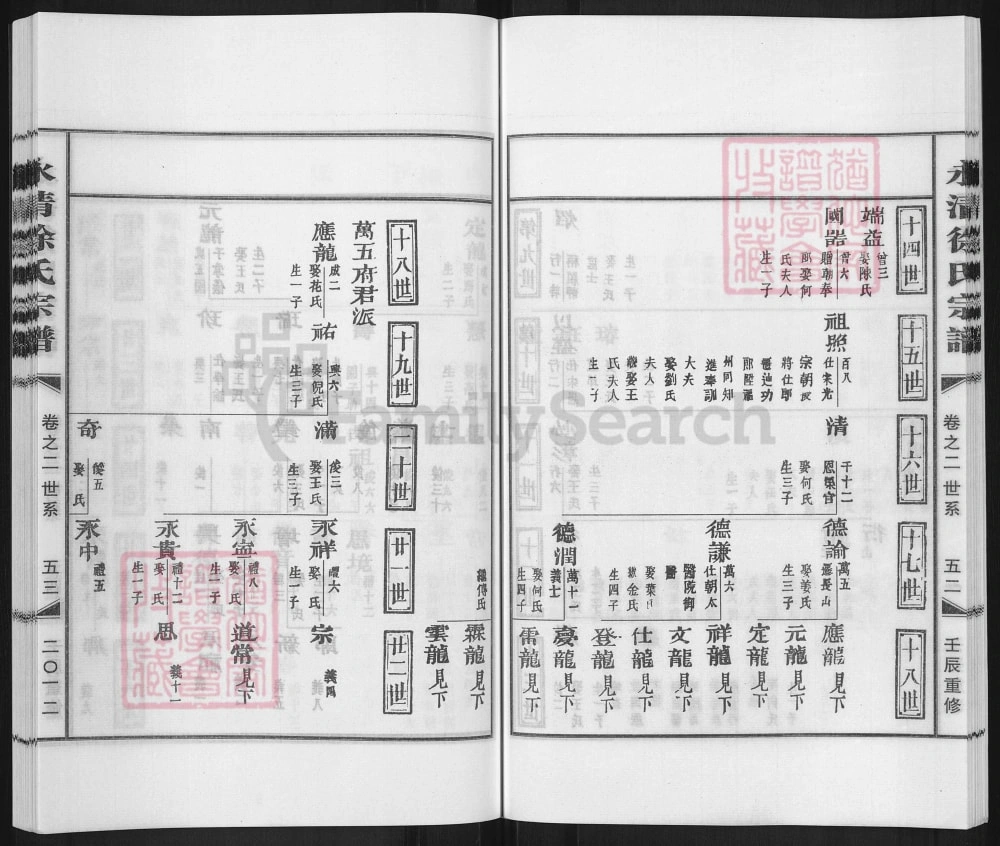 永清徐氏宗譜
卷之二 世系
五二
壬辰重修
十四世
十五世
十六世
十七世
十八世
端益
曾三
娶陳氏
國器
曾六
贈朝奉
郎娶何
氏夫人
生一子
祖照
百八
仕宋光
宗朝授
將仕郎
州同知
進奉訓
大夫
娶劉氏
夫人
繼娶王
氏夫人
生三子
清
千十二
恩榮官
娶何氏
生三子
德諭
萬五
娶姜氏
生三子
應龍 見下
元龍 見下
定龍 見下
德謙
萬六
仕朝太
醫院御
醫
娶葉氏
繼金氏
生四子
祥龍 見下
文龍 見下
仕龍 見下
登龍 見下
德潤
萬十一
義士
娶何氏
生四子
慶龍 見下
雷龍 見下
霖龍 見下
雲龍 見下
十八世
十九世
二十世
廿一世
廿二世
萬五府君派
應龍
成二
娶祐氏
生一子
祐
興六
娶倪氏
生三子
滿
俊三
娶王氏
生三子
永祥
禮六
娶 氏
生一子
宗
義四
永寧
禮八
娶 氏
生一子
道常 見下
永貴
禮十二
娶 氏
生一子
思
義十一
奇
俊五
娶 氏
永中
禮五
永清徐氏宗譜
卷之二 世系
五三
二〇一二
FamilySearch